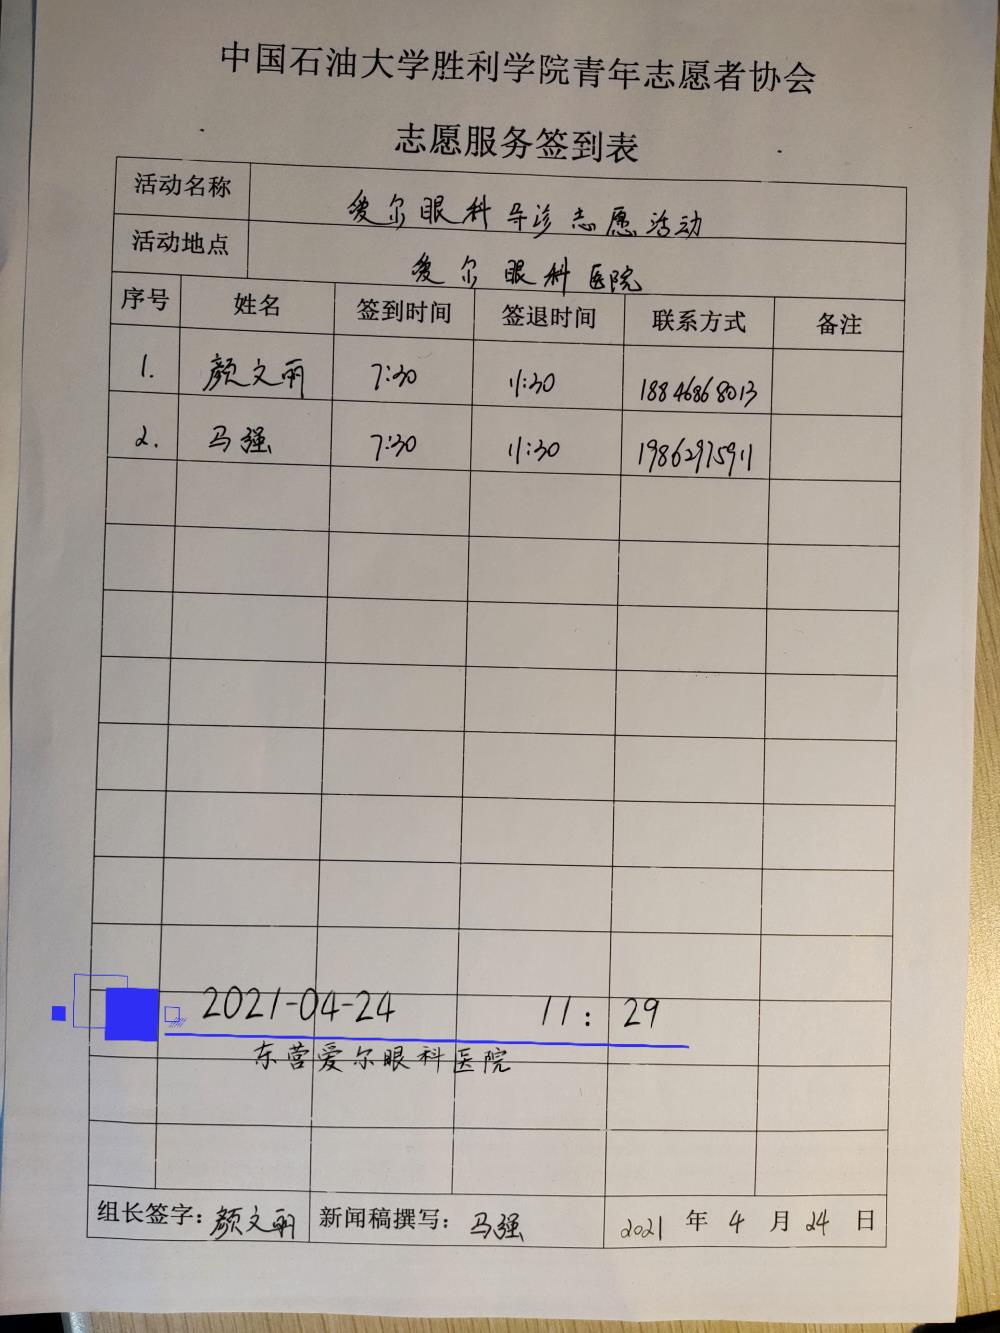 中国石油大学胜利学院青年志愿者协会
志愿服务签到表
活动名称 爱尔眼科导诊志愿活动
活动地点 爱尔眼科医院
序号 姓名 签到时间 签退时间 联系方式 备注
1. 颜文丽 7:30 11:30 18846868013
2. 马强 7:30 11:30 19862975911
2021-04-24 11:29
东营爱尔眼科医院
组长签字:颜文丽 新闻稿撰写:马强 2021年4月24日